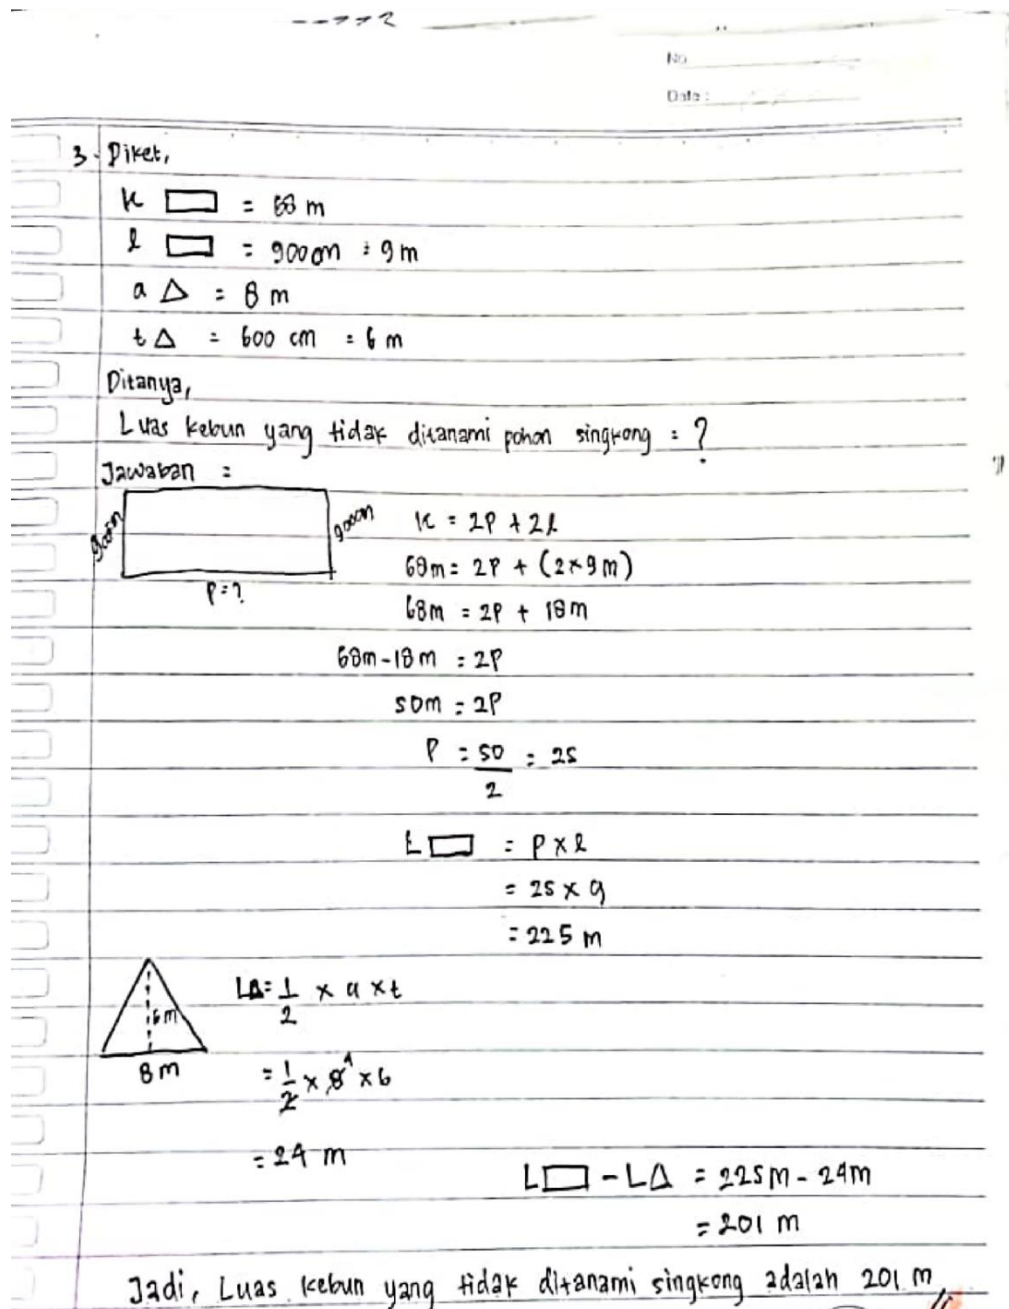 No
Date :
3. Diket,
K ▭ = 68 m
l ▭ = 900 cm = 9 m
a △ = 8 m
t △ = 600 cm = 6 m
Ditanya,
Luas kebun yang tidak ditanami pohon singkong = ?
Jawaban =
900cm
900cm
P = ?
K = 2P + 2l
68m = 2P + (2 × 9 m)
68m = 2P + 18m
68m - 18 m = 2P
50m = 2P
P = 50/2 = 25
L ▭ = P × l
= 25 × 9
= 225 m
6 m
8 m
L△ = 1/2 × a × t
= 1/2 × 8 4 × 6
= 24 m
L▭ - L△ = 225m - 24m
= 201 m
Jadi, Luas kebun yang tidak ditanami singkong adalah 201 m